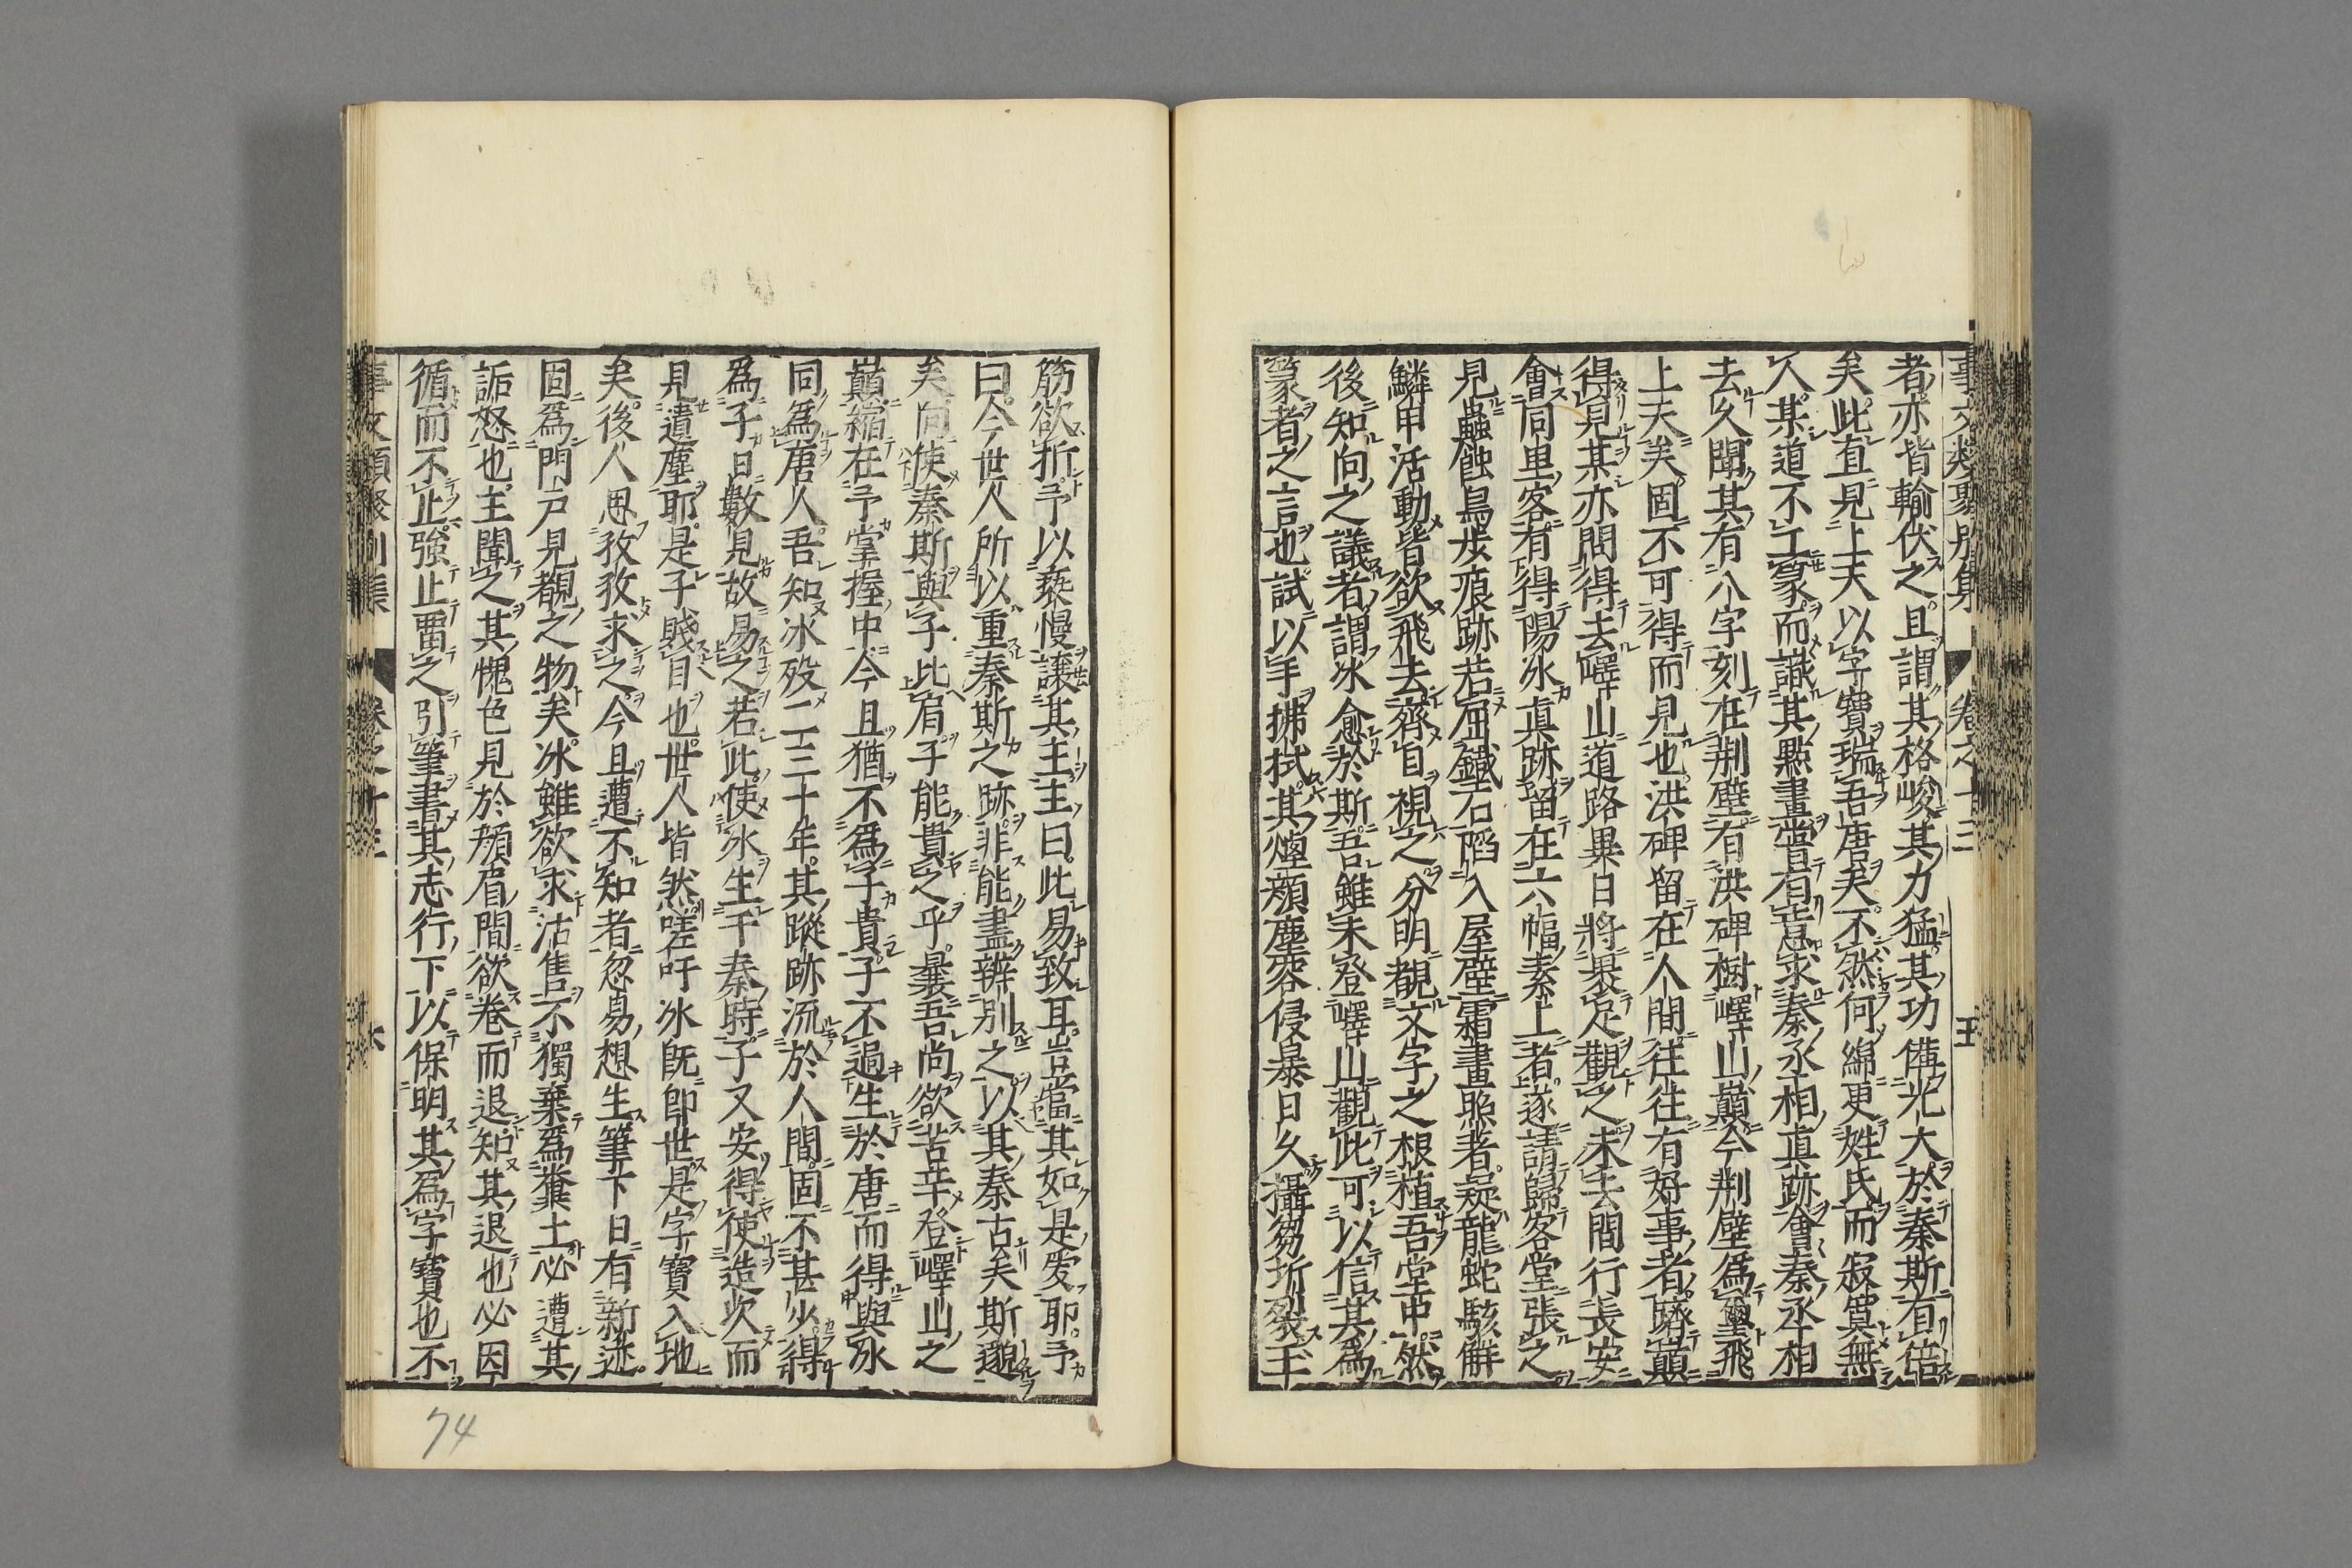 事文類聚別集 卷之十三 五
者亦皆輸伏之且謂其格峻其力猛其功備光大於秦斯有倍
矣此直見上天以字寶瑞吾唐矣不然何綿更姓氏而寂寞無
人某道不工篆而識其點畫嘗有意求秦丞相真跡會秦丞相
去久聞其有八字刻在荆璧有洪碑樹嶧山巔今荆璧爲璽飛
上天矣固不可得而見也洪碑留在人間往往有好事者躋巔
得見某亦問得去嶧山道路異日將褁足觀之未去間行長安
會同里客有得陽冰真跡留在六幅素上者遂請歸客堂張之
見蟲蝕鳥步痕跡若屈鐵石陷入屋壁霜晝照者疑龍蛇駭解
鱗甲活動皆欲飛去齊目視之分明覩文字之根植吾堂中然
後知向之議者謂冰愈於斯吾雖未登嶧山觀此可以信其爲
篆者之言也試以手拂拭其煙頹塵容侵暴日久攝芻圻裂玉
筋欲折予以褻慢讓其主主曰此易致耳豈當其如是愛耶予
曰今世人所以重秦斯之跡非能盡辨別之以其秦古矣斯邈
矣向使秦斯與子比肩子能貴之乎曩吾尚欲苦辛登嶧山之
巔縮在予掌握中今且猶不爲子貴子不過生於唐而得與冰
同爲唐人吾知冰殁二三十年其蹤跡流於人間固不甚少得
爲子日數見故易之若此使冰生于秦時子又安得使造次而
見遺塵耶是子賤目也世人皆然嗟吁冰既即世是字寶入地
矣後人思孜孜求之今且遭不知者忽易想生筆下日有新迹
固爲門戶見覩之物矣冰雖欲求沽售不獨棄爲糞土必遭其
詬怒也主聞之其愧色見於顏眉間欲卷而退知其退也必因
循而不止強止畱之引筆書其志行下以保明其爲字寶也不
事文類聚別集 卷之十三
74